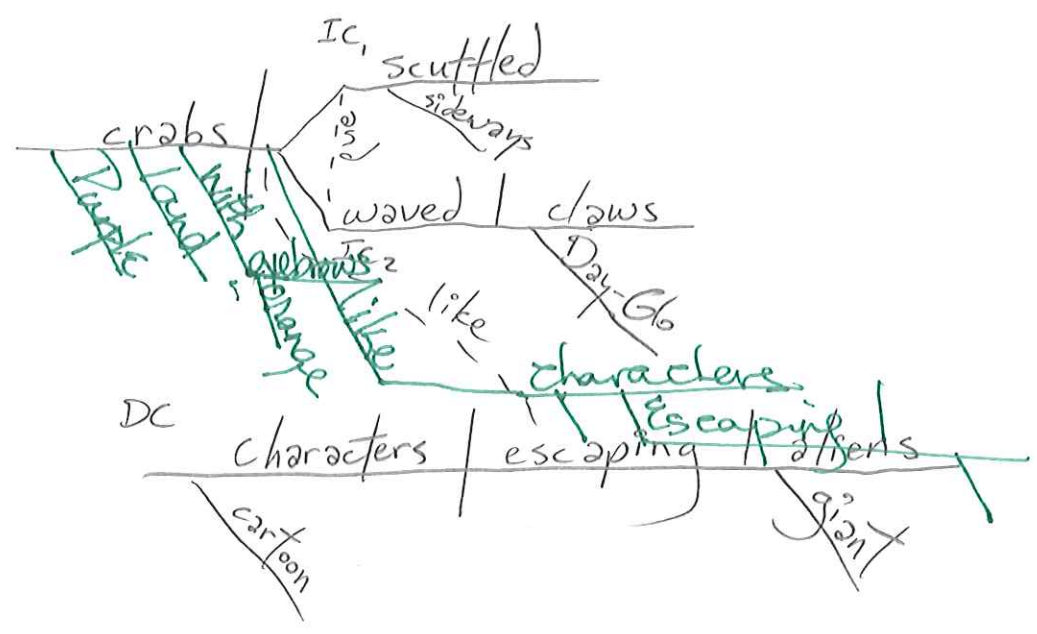 IC₁
scuttled
sideways
crabs
waved claws
IC₂
Day-Glo
Purple
land
with
eyebrows
orange
like
like
characters
escaping
DC
characters escaping aliens
cartoon
giant